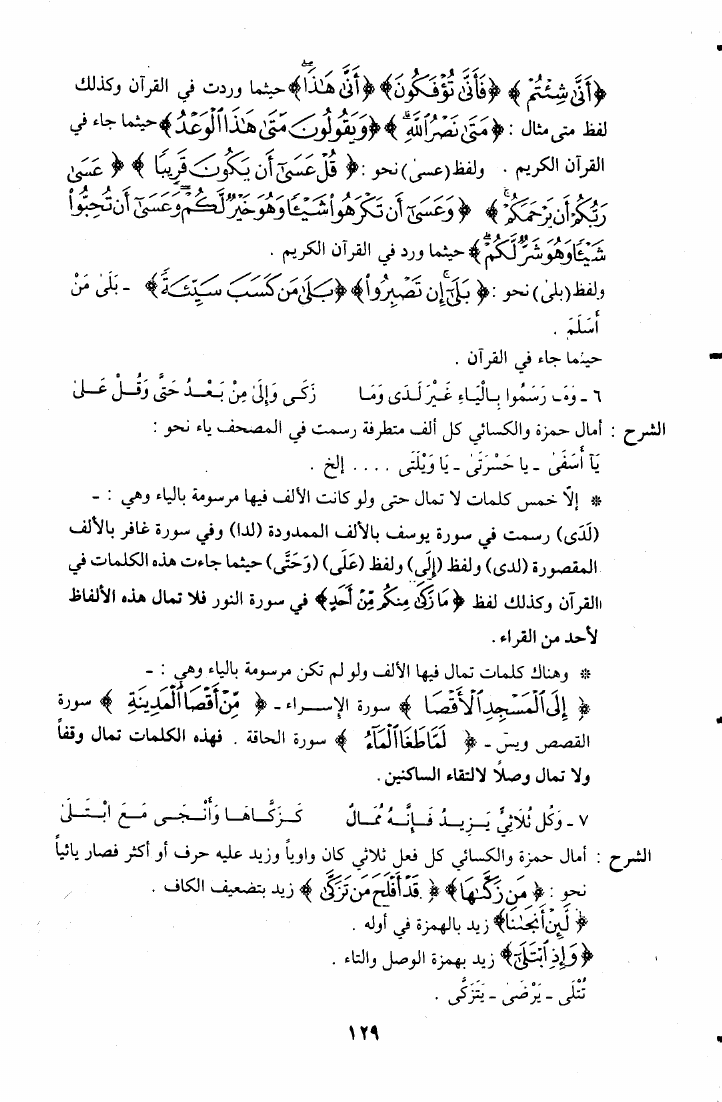 ﴿أَنَّىٰ شِئْتُمْ﴾ ﴿فَأَنَّىٰ تُؤْفَكُونَ﴾ ﴿أَنَّىٰ هَٰذَا﴾ حيثما وردت في القرآن وكذلك
لفظ متى مثال : ﴿مَتَىٰ نَصْرُ ٱللَّهِ﴾ ﴿وَيَقُولُونَ مَتَىٰ هَٰذَا ٱلْوَعْدُ﴾ حيثما جاء في
القرآن الكريم . ولفظ (عسىٰ) نحو : ﴿قُلْ عَسَىٰٓ أَن يَكُونَ قَرِيبًا﴾ ﴿عَسَىٰ
رَبُّكُمْ أَن يَرْحَمَكُمْ﴾ ﴿وَعَسَىٰٓ أَن تَكْرَهُوا۟ شَيْـًٔا وَهُوَ خَيْرٌ لَّكُمْ وَعَسَىٰٓ أَن تُحِبُّوا۟
شَيْـًٔا وَهُوَ شَرٌّ لَّكُمْ﴾ حيثما ورد في القرآن الكريم .
ولفظ (بلىٰ) نحو : ﴿بَلَىٰٓ إِن تَصْبِرُوا۟﴾ ﴿بَلَىٰ مَن كَسَبَ سَيِّئَةً﴾ - بَلَىٰ مَنْ
أَسْلَمَ .
حيثما جاء في القرآن .
٦ - وَمَا رَسَمُوا بِالْيَاءِ غَيْرَ لَدَى وَمَا زَكَى وَإِلَىٰ مِنْ بَعْدُ حَتَّى وَقُلْ عَلَىٰ
الشرح : أمال حمزة والكسائي كل ألف متطرفة رسمت في المصحف ياء نحو :
يَآ أَسَفَىٰ - يا حَسْرَتَىٰ - يَا وَيْلَتَى .... إلخ .
* إلّا خمس كلمات لا تمال حتى ولو كانت الألف فيها مرسومة بالياء وهي : -
(لَدَى) رسمت في سورة يوسف بالألف الممدودة (لدا) وفي سورة غافر بالألف
المقصورة (لدى) ولفظ (إِلَى) ولفظ (عَلَى) (وَحَتَّى) حيثما جاءت هذه الكلمات في
القرآن وكذلك لفظ ﴿مَا زَكَىٰ مِنكُم مِّنْ أَحَدٍ﴾ في سورة النور فلا تمال هذه الألفاظ
لأحد من القراء .
* وهناك كلمات تمال فيها الألف ولو لم تكن مرسومة بالياء وهي : -
﴿إِلَى ٱلْمَسْجِدِ ٱلْأَقْصَا﴾ سورة الإسراء - ﴿مِّنْ أَقْصَا ٱلْمَدِينَةِ﴾ سورة
القصص ويسٓ - ﴿لَمَّا طَغَا ٱلْمَآءُ﴾ سورة الحاقة . فهذه الكلمات تمال وقفاً
ولا تمال وصلًا لالتقاء الساكنين .
٧ - وَكُل ثُلَاثِيٍّ يَزِيدُ فَإِنَّهُ مُمَالٌ كَزَكَّاهَا وَأَنْجَى مَعَ ابْتَلَىٰ
الشرح : أمال حمزة والكسائي كل فعل ثلاثي كان واوياً وزيد عليه حرف أو أكثر فصار يائياً
نحو : ﴿مَن زَكَّىٰهَا﴾ ﴿قَدْ أَفْلَحَ مَن تَزَكَّىٰ﴾ زيد بتضعيف الكاف .
﴿لَّئِنْ أَنجَىٰنَا﴾ زيد بالهمزة في أوله .
﴿وَإِذِ ٱبْتَلَىٰٓ﴾ زيد بهمزة الوصل والتاء .
تُتْلَى - يَرْضَى - يَتَزَكَّى .
١٢٩